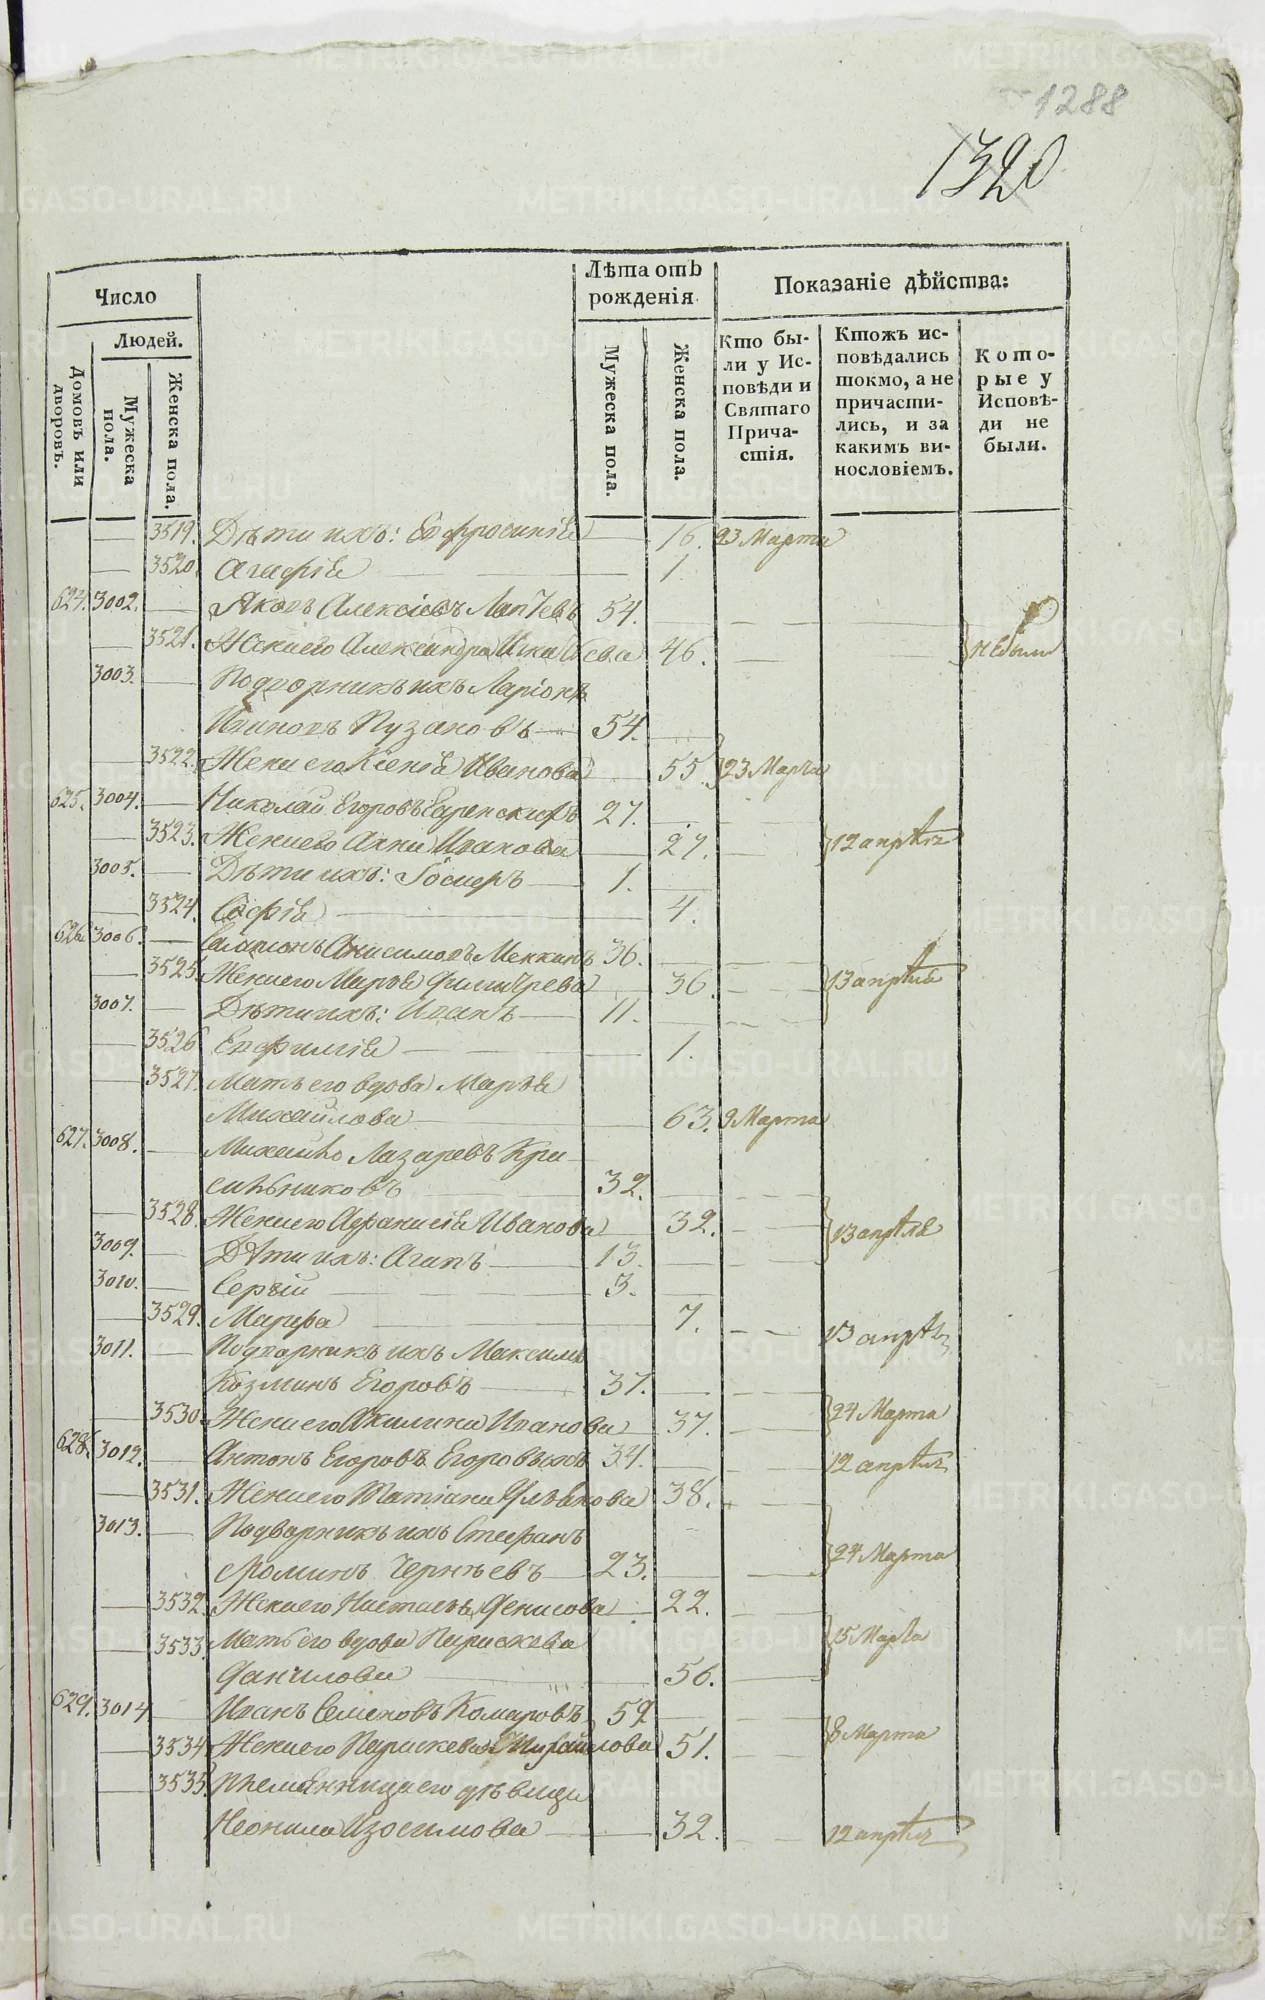 1288
1320
Число
Лѣта отъ рожденія
Показаніе дѣйства:
Людей.
Домовъ или дворовъ.
Мужеска пола.
Женска пола.
Мужеска пола.
Женска пола.
Кто были у Исповѣди и Святаго Причастія.
Ктожъ исповѣдались токмо, а не причастились, и за какимъ винословіемъ.
Которые у Исповѣди не были.
3519. Дѣти ихъ: Евфросинія 16. 23 Марта
3520. Агафія 1.
624. 3002. Яковъ Алексіевъ Лаптевъ 54.
3521. Жена его Александра 46. не были
3003. Подворникъ ихъ Ларіонъ
Ивановъ Пузановъ 54.
3522. Жена его Ксенія Иванова 55. 23 Марта
625. 3004. Николай Егоровъ 27.
3523. Жена его Анна Иванова 27. 12 апрѣля
3005. Дѣти ихъ: 1.
3524. Софія 4.
626. 3006. Анисимовъ 36.
3525. Жена его Марѳа 36. 13 апрѣля
3007. Дѣти ихъ: Иванъ 11.
3526 Евфимія 1.
3527. Мать его вдова Марѳа
Михайлова 63. 9 Марта
627. 3008. Михайло Лазаревъ Кра
сильниковъ 32.
3528. Жена его Афанасія Иванова 32. 13 апрѣля
3009. Дѣти ихъ: Агапъ 13.
3010. Сергій 3.
3529. Марфа 7. 13 апрѣля
3011. Подворникъ ихъ Максимъ
Козминъ Егоровъ 37.
3530. Жена его Акилина Иванова 37. 24 Марта
628. 3012. Антонъ Егоровъ Егоровыхъ 34. 12 апрѣля
3531. Жена его Татіана 38.
3013. Подворникъ ихъ Стефанъ
Ѳоминъ 23. 24 Марта
3532. Жена его Настасья Денисова 22.
3533. Мать его вдова Параскева 15 Марта
Данилова 56.
629. 3014 Иванъ Семеновъ Комаровъ 52
3534. Жена его Параскева Михайлова 51. 8 Марта
3535. Племянница его дѣвица
Неонила Изосимова 32. 12 апрѣля
METRIKI.GASO-URAL.RU